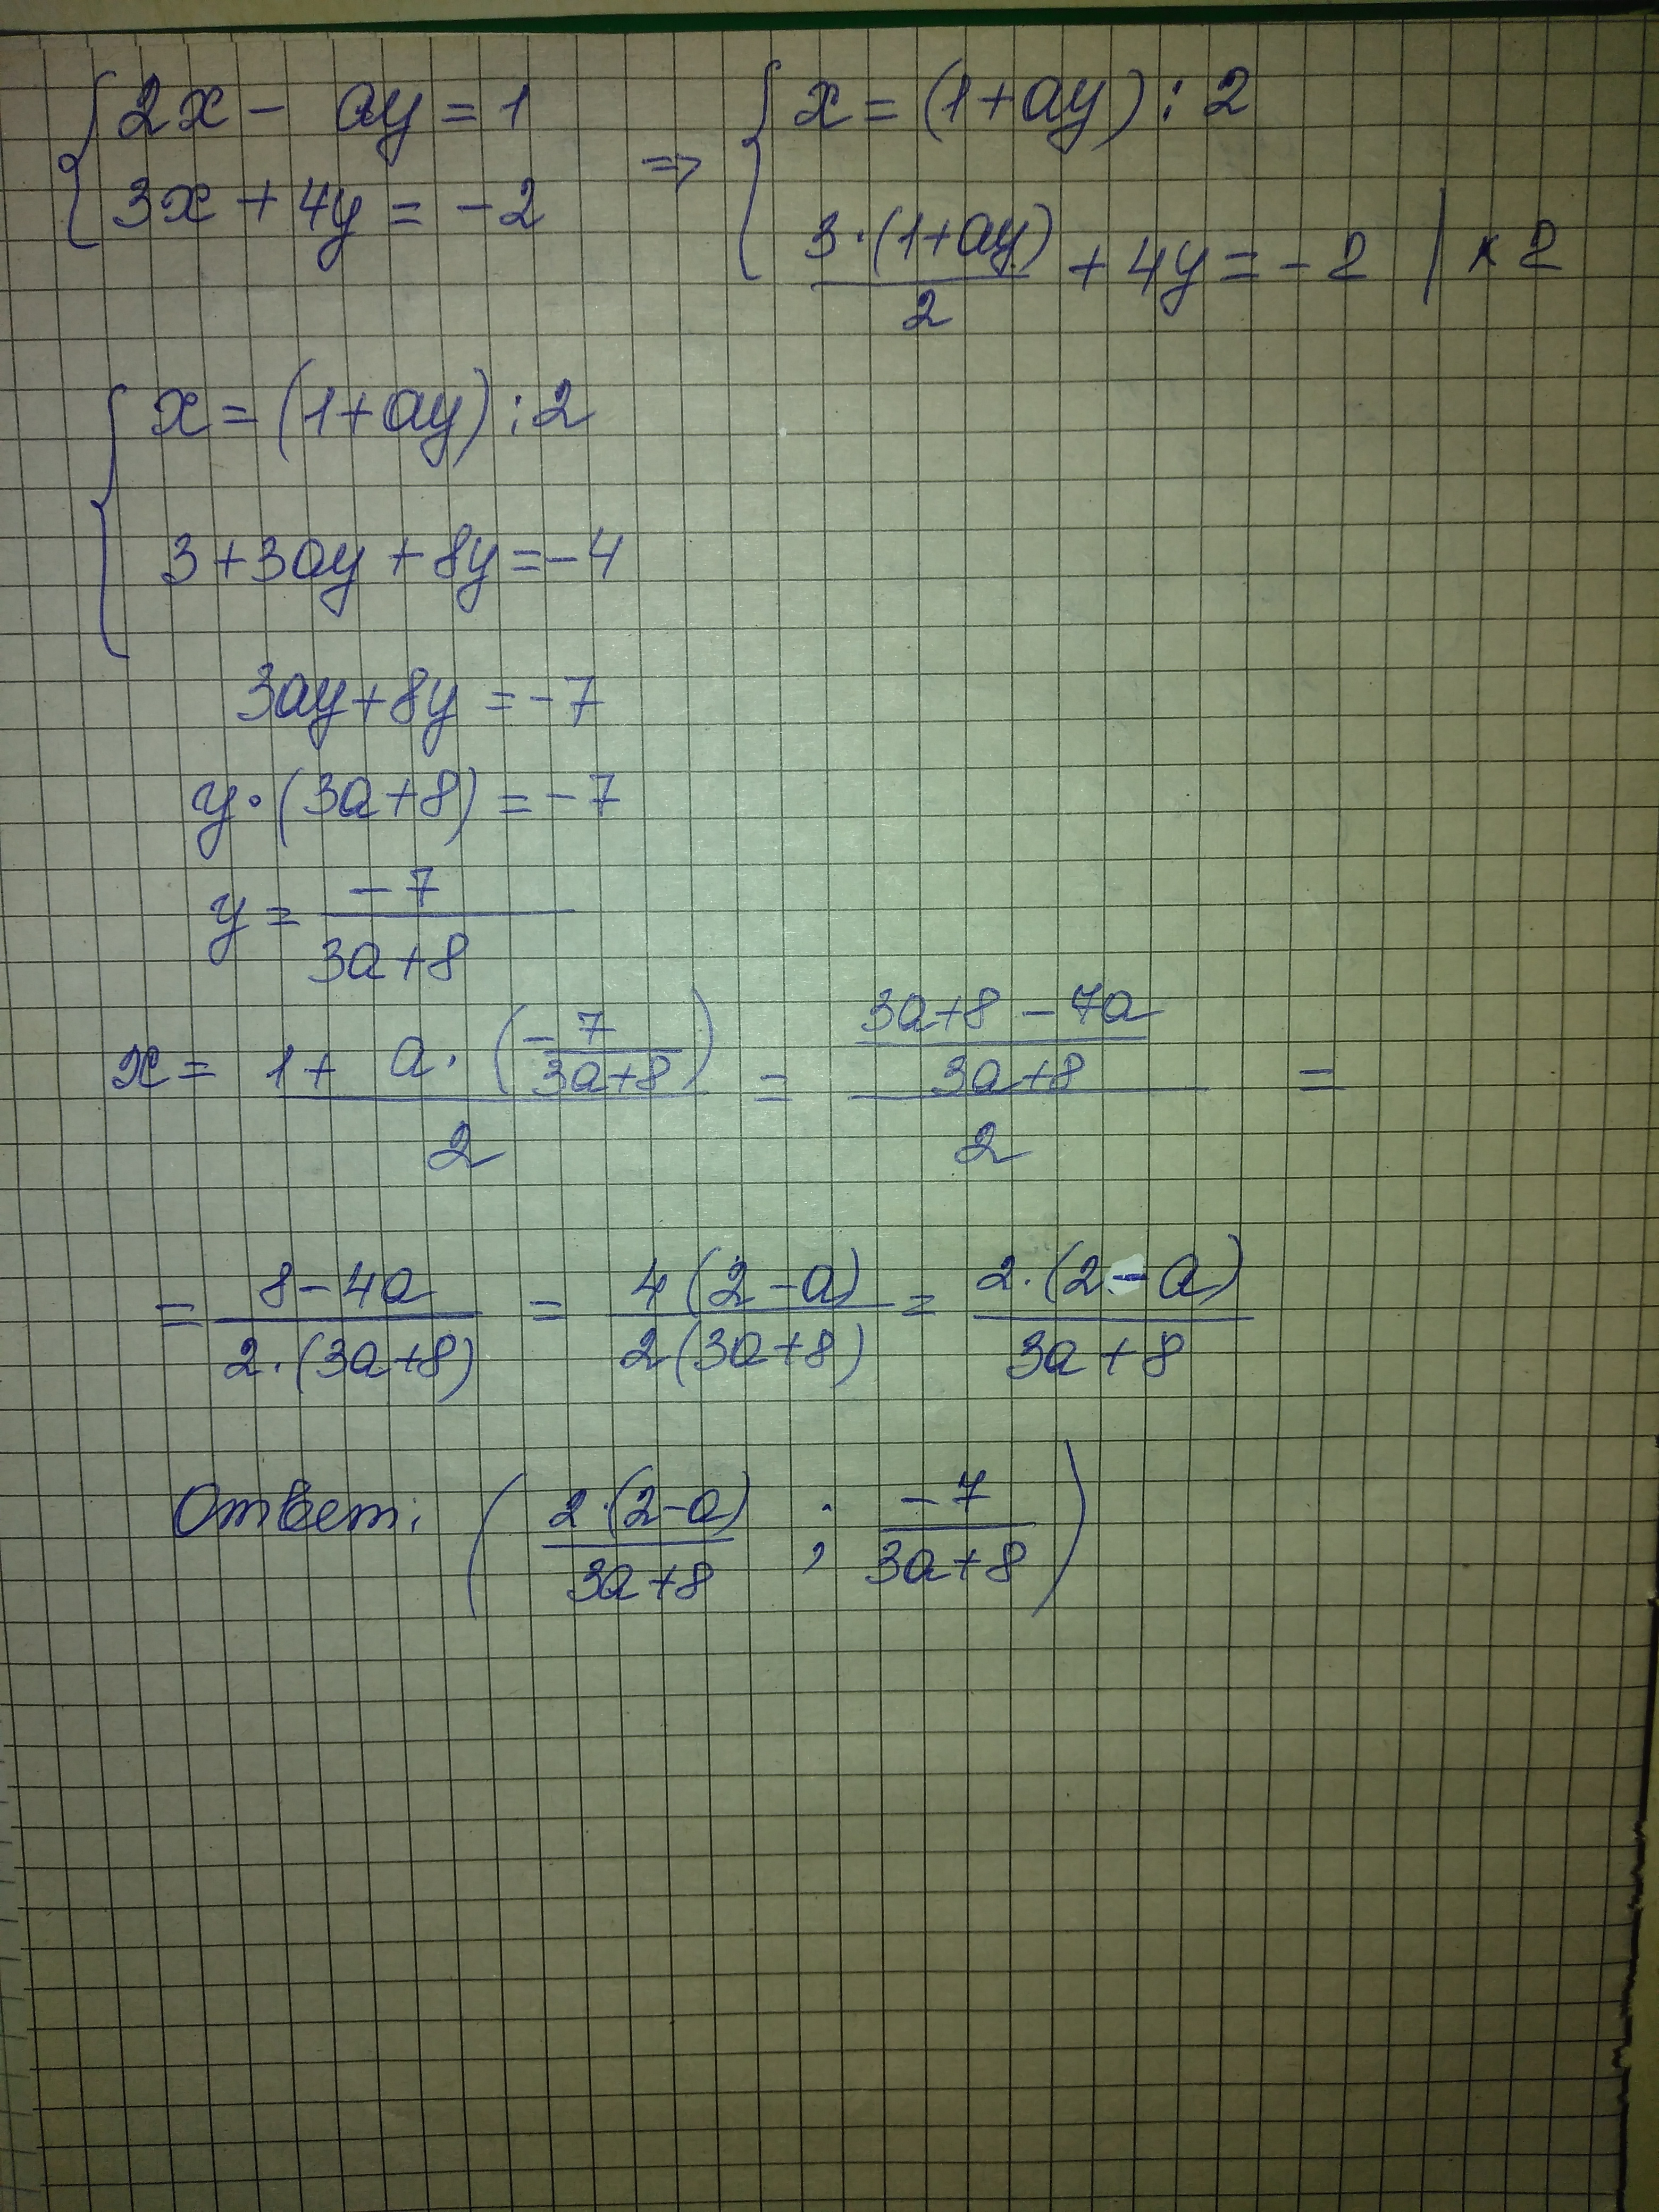 { 2x - ay = 1
3x + 4y = -2
=> { x = (1+ay) : 2
3·(1+ay)/2 + 4y = -2 | × 2
{ x = (1+ay) : 2
3+3ay+8y=-4
3ay+8y = -7
y·(3a+8) = -7
y = -7/(3a+8)
x = (1+ a·(-7/(3a+8)))/2 = ((3a+8-7a)/(3a+8))/2 =
= (8-4a)/(2·(3a+8)) = 4(2-a)/(2(3a+8)) = 2·(2-a)/(3a+8)
Ответ: (2·(2-a)/(3a+8) ; -7/(3a+8))